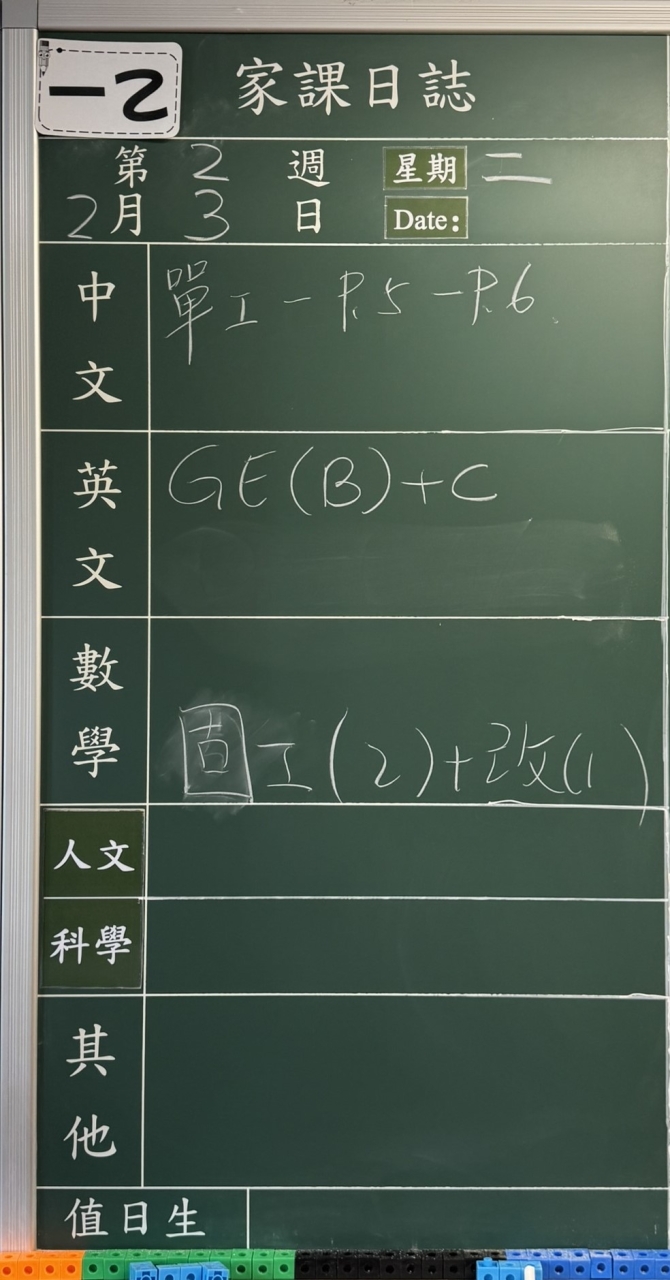 一乙
家課日誌
第 2 週 星期 二
2月 3 日 Date:
中文 單工-P.5-P.6
英文 GE(B)+C
數學 固工(2)+改(1)
人文
科學
其他
值日生